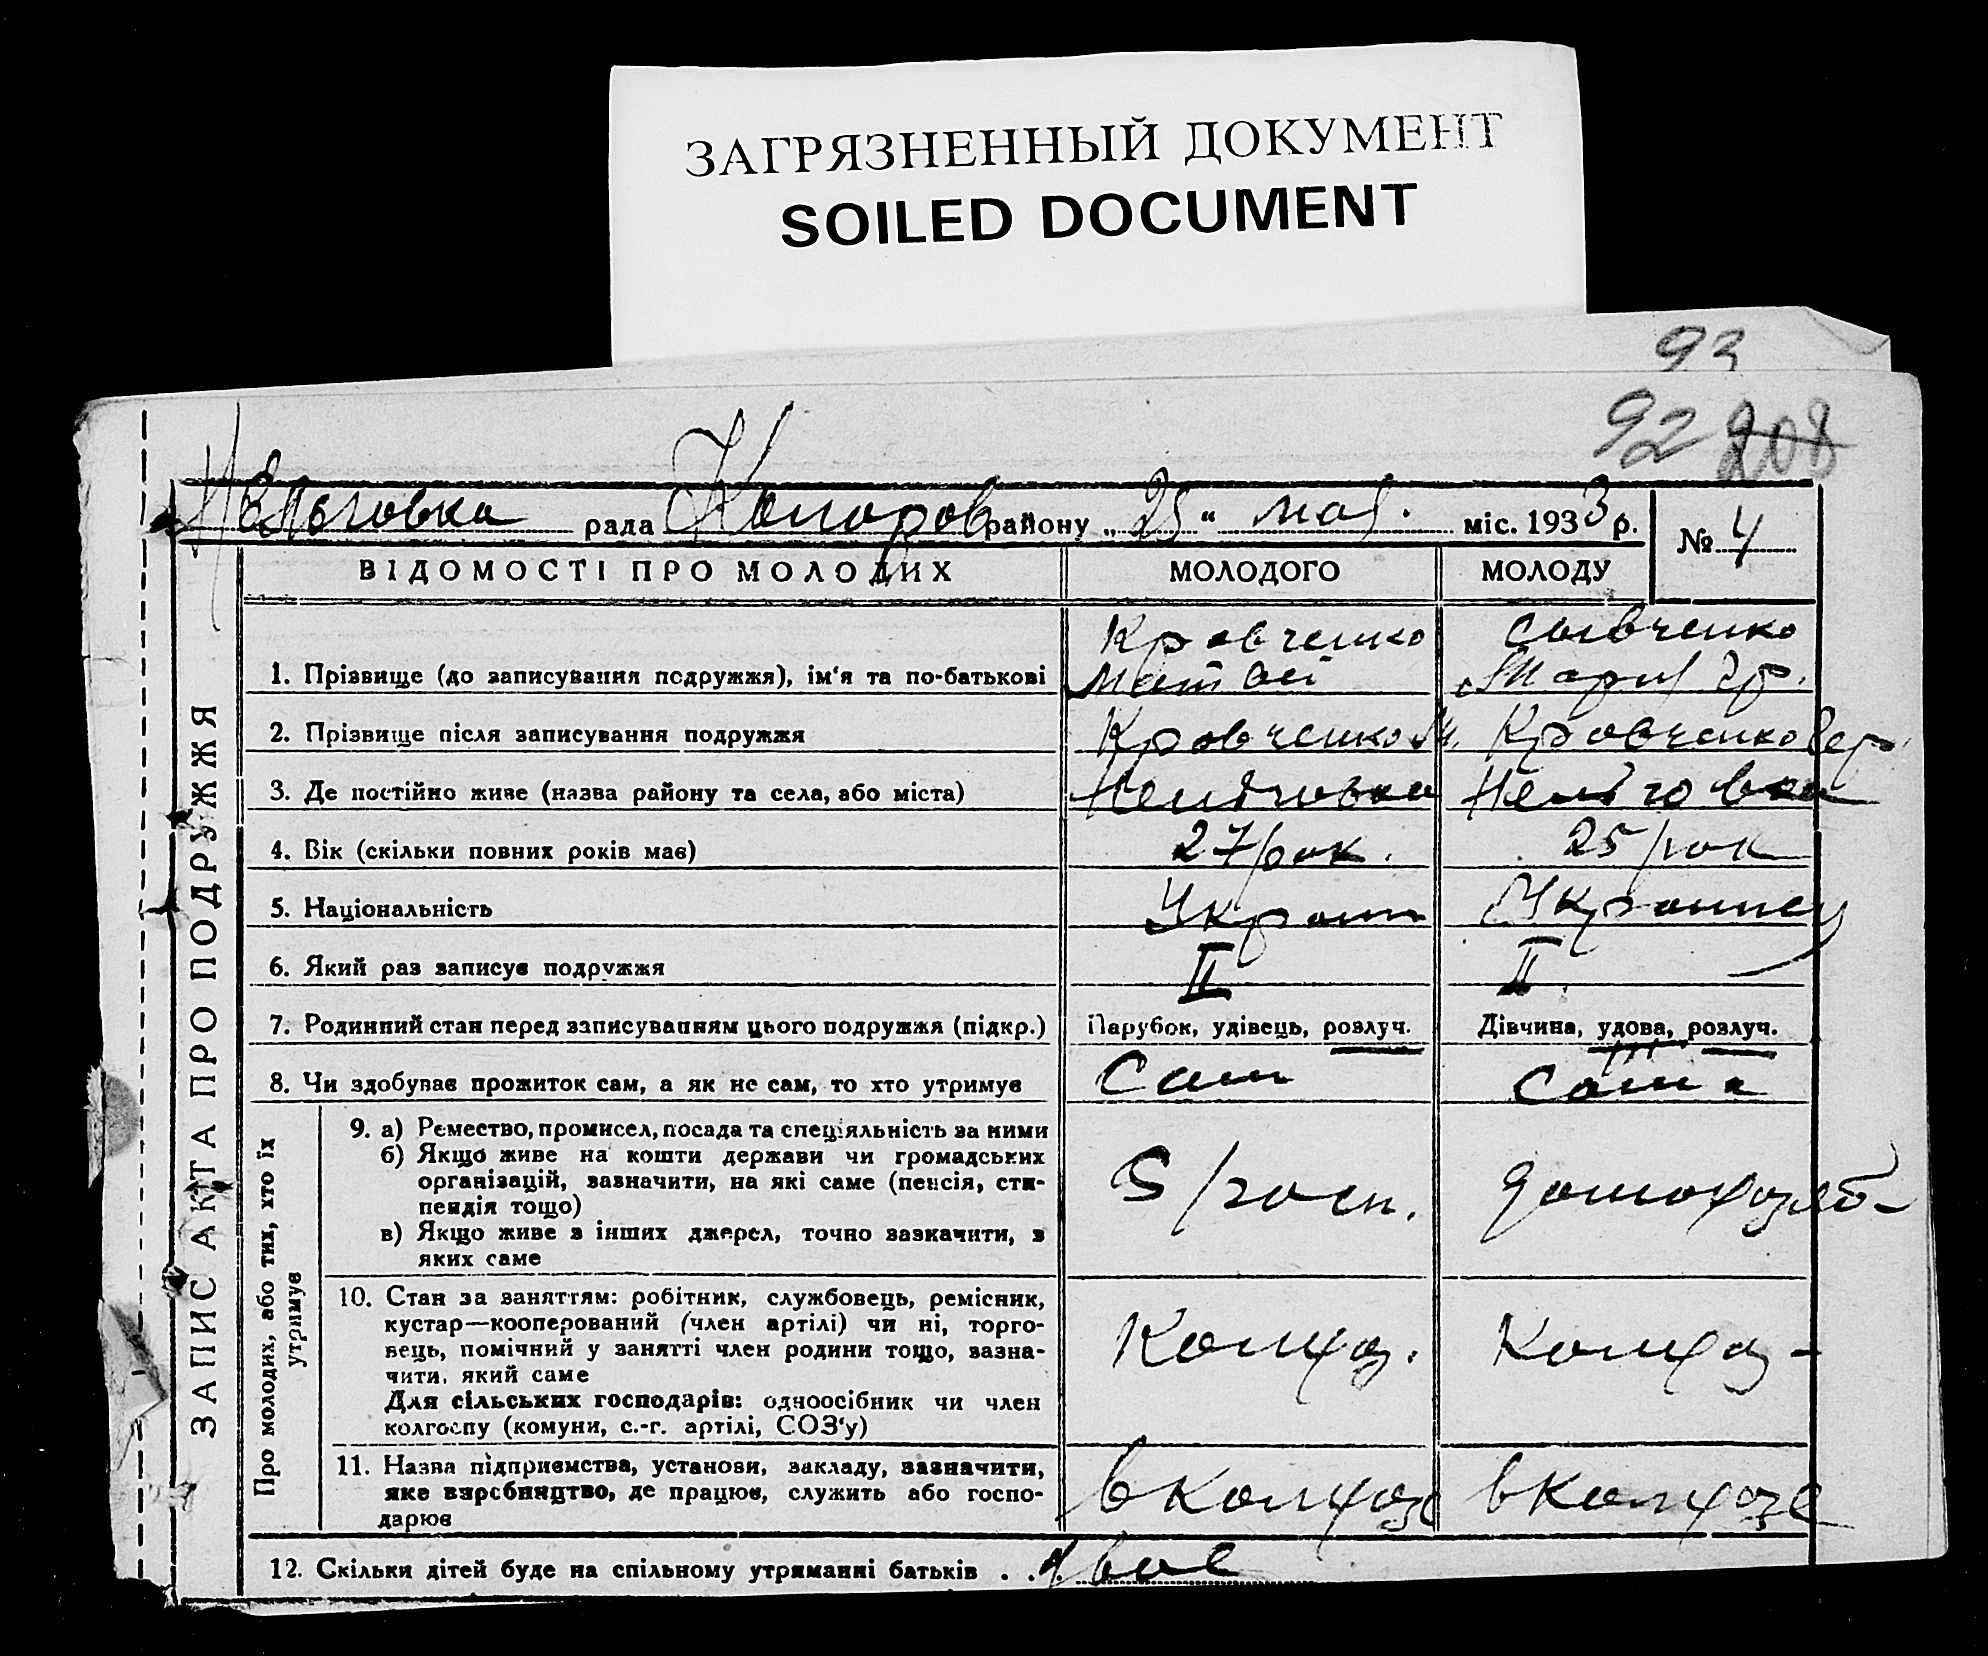 ЗАГРЯЗНЕННЫЙ ДОКУМЕНТ
SOILED DOCUMENT
93
92 208
рада району „25“ мая. міс. 1933 р. № 4
ВІДОМОСТІ ПРО МОЛОДИХ МОЛОДОГО МОЛОДУ
ЗАПИС АКТА ПРО ПОДРУЖЖЯ
Кровченко
1. Прізвище (до записування подружжя), ім'я та по-батькові Матвеі Мария Гр.
2. Прізвище після записування подружжя Кровченко М. Кровченко
3. Де постійно живе (назва району та села, або міста)
4. Вік (скільки повних років має) 27/рок. 25/рок
5. Національність Украин
6. Який раз записує подружжя II II.
7. Родинний стан перед записуванням цього подружжя (підкр.) Парубок, удівець, розлуч. Дівчина, удова, розлуч.
8. Чи здобуває прожиток сам, а як не сам, то хто утримує Сам Сама
Про молодих, або тих, хто їх
утримує
9. а) Ремество, промисел, посада та спеціяльність за ними
б) Якщо живе на кошти держави чи громадських
організацій, зазначити, на які саме (пенсія, сти-
пендія тощо)
в) Якщо живе з інших джерел, точно зазначити, з
яких саме
10. Стан за заняттям: робітник, службовець, ремісник,
кустар—кооперований (член артілі) чи ні, торго-
вець, помічний у занятті член родини тощо, зазна-
чити, який саме
Для сільських господарів: одноосібник чи член
колгоспу (комуни, с.-г. артілі, СОЗ'у)
Колхоз. Колхоз-
11. Назва підприємства, установи, закладу, зазначити,
яке виробництво, де працює, служить або госпо-
дарює
в Колхозе в Колхозе
12. Скільки дітей буде на спільному утриманні батьків . . двое